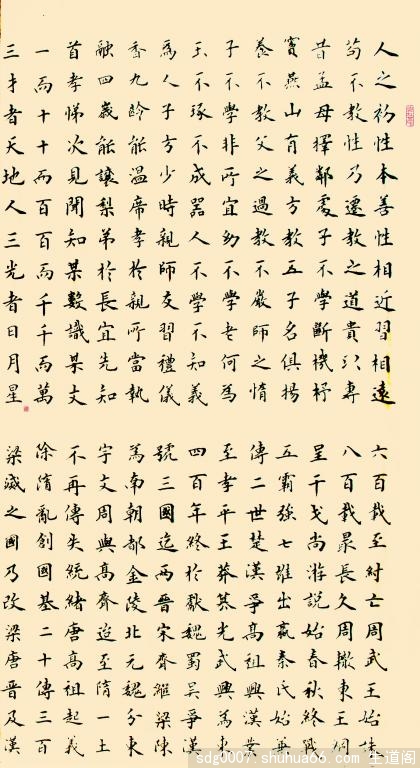 人之初性本善性相近習相遠
苟不教性乃遷教之道貴以專
昔孟母擇鄰處子不學斷機杼
竇燕山有義方教五子名俱揚
養不教父之過教不嚴師之惰
子不學非所宜幼不學老何為
玉不琢不成器人不學不知義
為人子方少時親師友習禮儀
香九齡能温席孝於親所當執
融四歲能讓梨弟於長宜先知
首孝悌次見聞知某數識某文
一而十十而百百而千千而萬
三才者天地人三光者日月星
六百載至紂亡周武王始誅
八百載最長久周轍東王綱
呈干戈尚游説始春秋終戰
五霸強七雄出嬴秦氏始兼
傳二世楚漢爭高祖興漢業
至孝平王莽篡光武興為東
四百年終於獻魏蜀吴爭漢
號三國迄兩晉宋齊繼梁陳
為南朝都金陵北元魏分東
宇文周與高齊迨至隋一土
不再傳失統緒唐高祖起義
除隋亂創國基二十傳三百
梁滅之國乃改梁唐晉及漢
sdg0007.shuhua66.com 生道阁